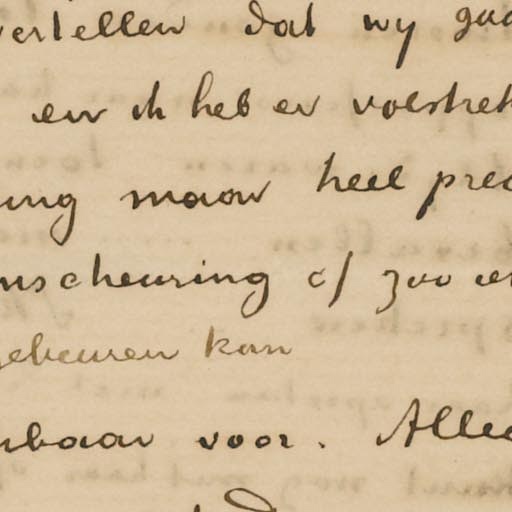 vertellen dat wy gaa
en ik heb er volstrekt
ing maar heel prec
nscheuring of zoo iet
gebeuren kan
nbaar voor. Allee